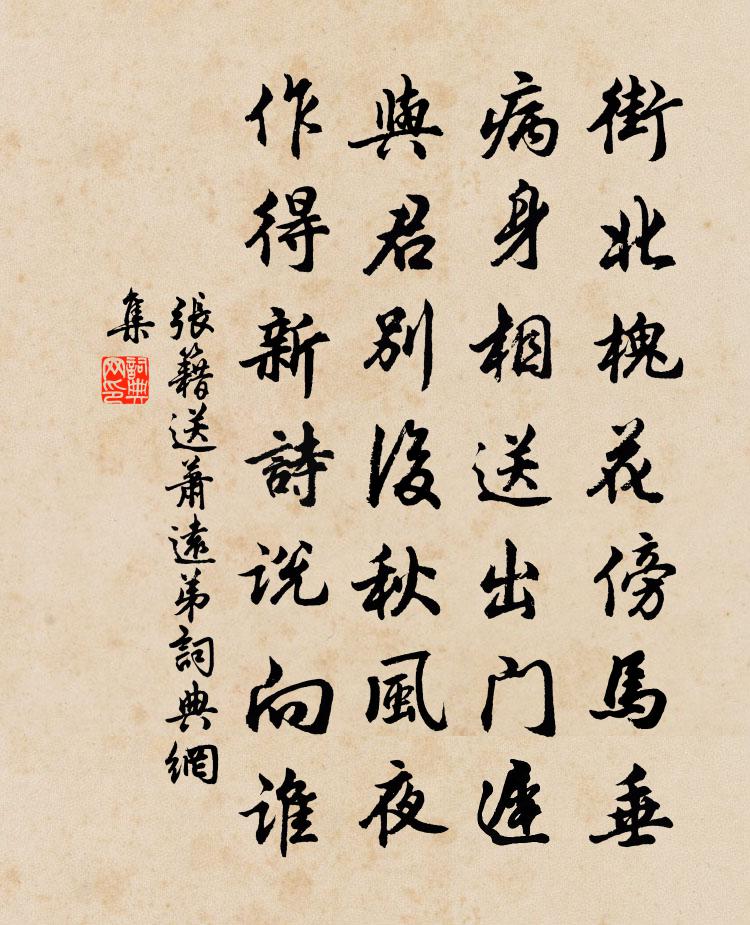 街北槐花傍馬垂
病身相送出门遲
與君別後秋風夜
作得新詩说向谁
張籍送蕭遠弟詞典網
集
詞典
网印